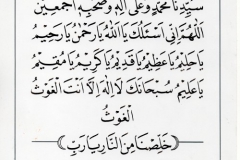 سَيِّدِنَا مُحَمَّدٍ وَعَلَى اٰلِهِ وَصَحْبِهِ اَجْمَعِينَ
اَللّٰهُمَّ اِنِّى اَسْئَلُكَ يَا اَللّٰهُ يَا رَحْمٰنُ يَا رَحِيمُ
يَا حَلِيمُ يَا عَظِيمُ يَا قَدِيمُ يَا كَرِيمُ يَا مُقِيمُ
يَا عَلِيمُ سُبْحَانَكَ لَا اِلٰهَ اِلَّا اَنْتَ الْغَوْثُ
الْغَوْثُ
خَلِّصْنَا مِنَ النَّارِ يَا رَبِّ